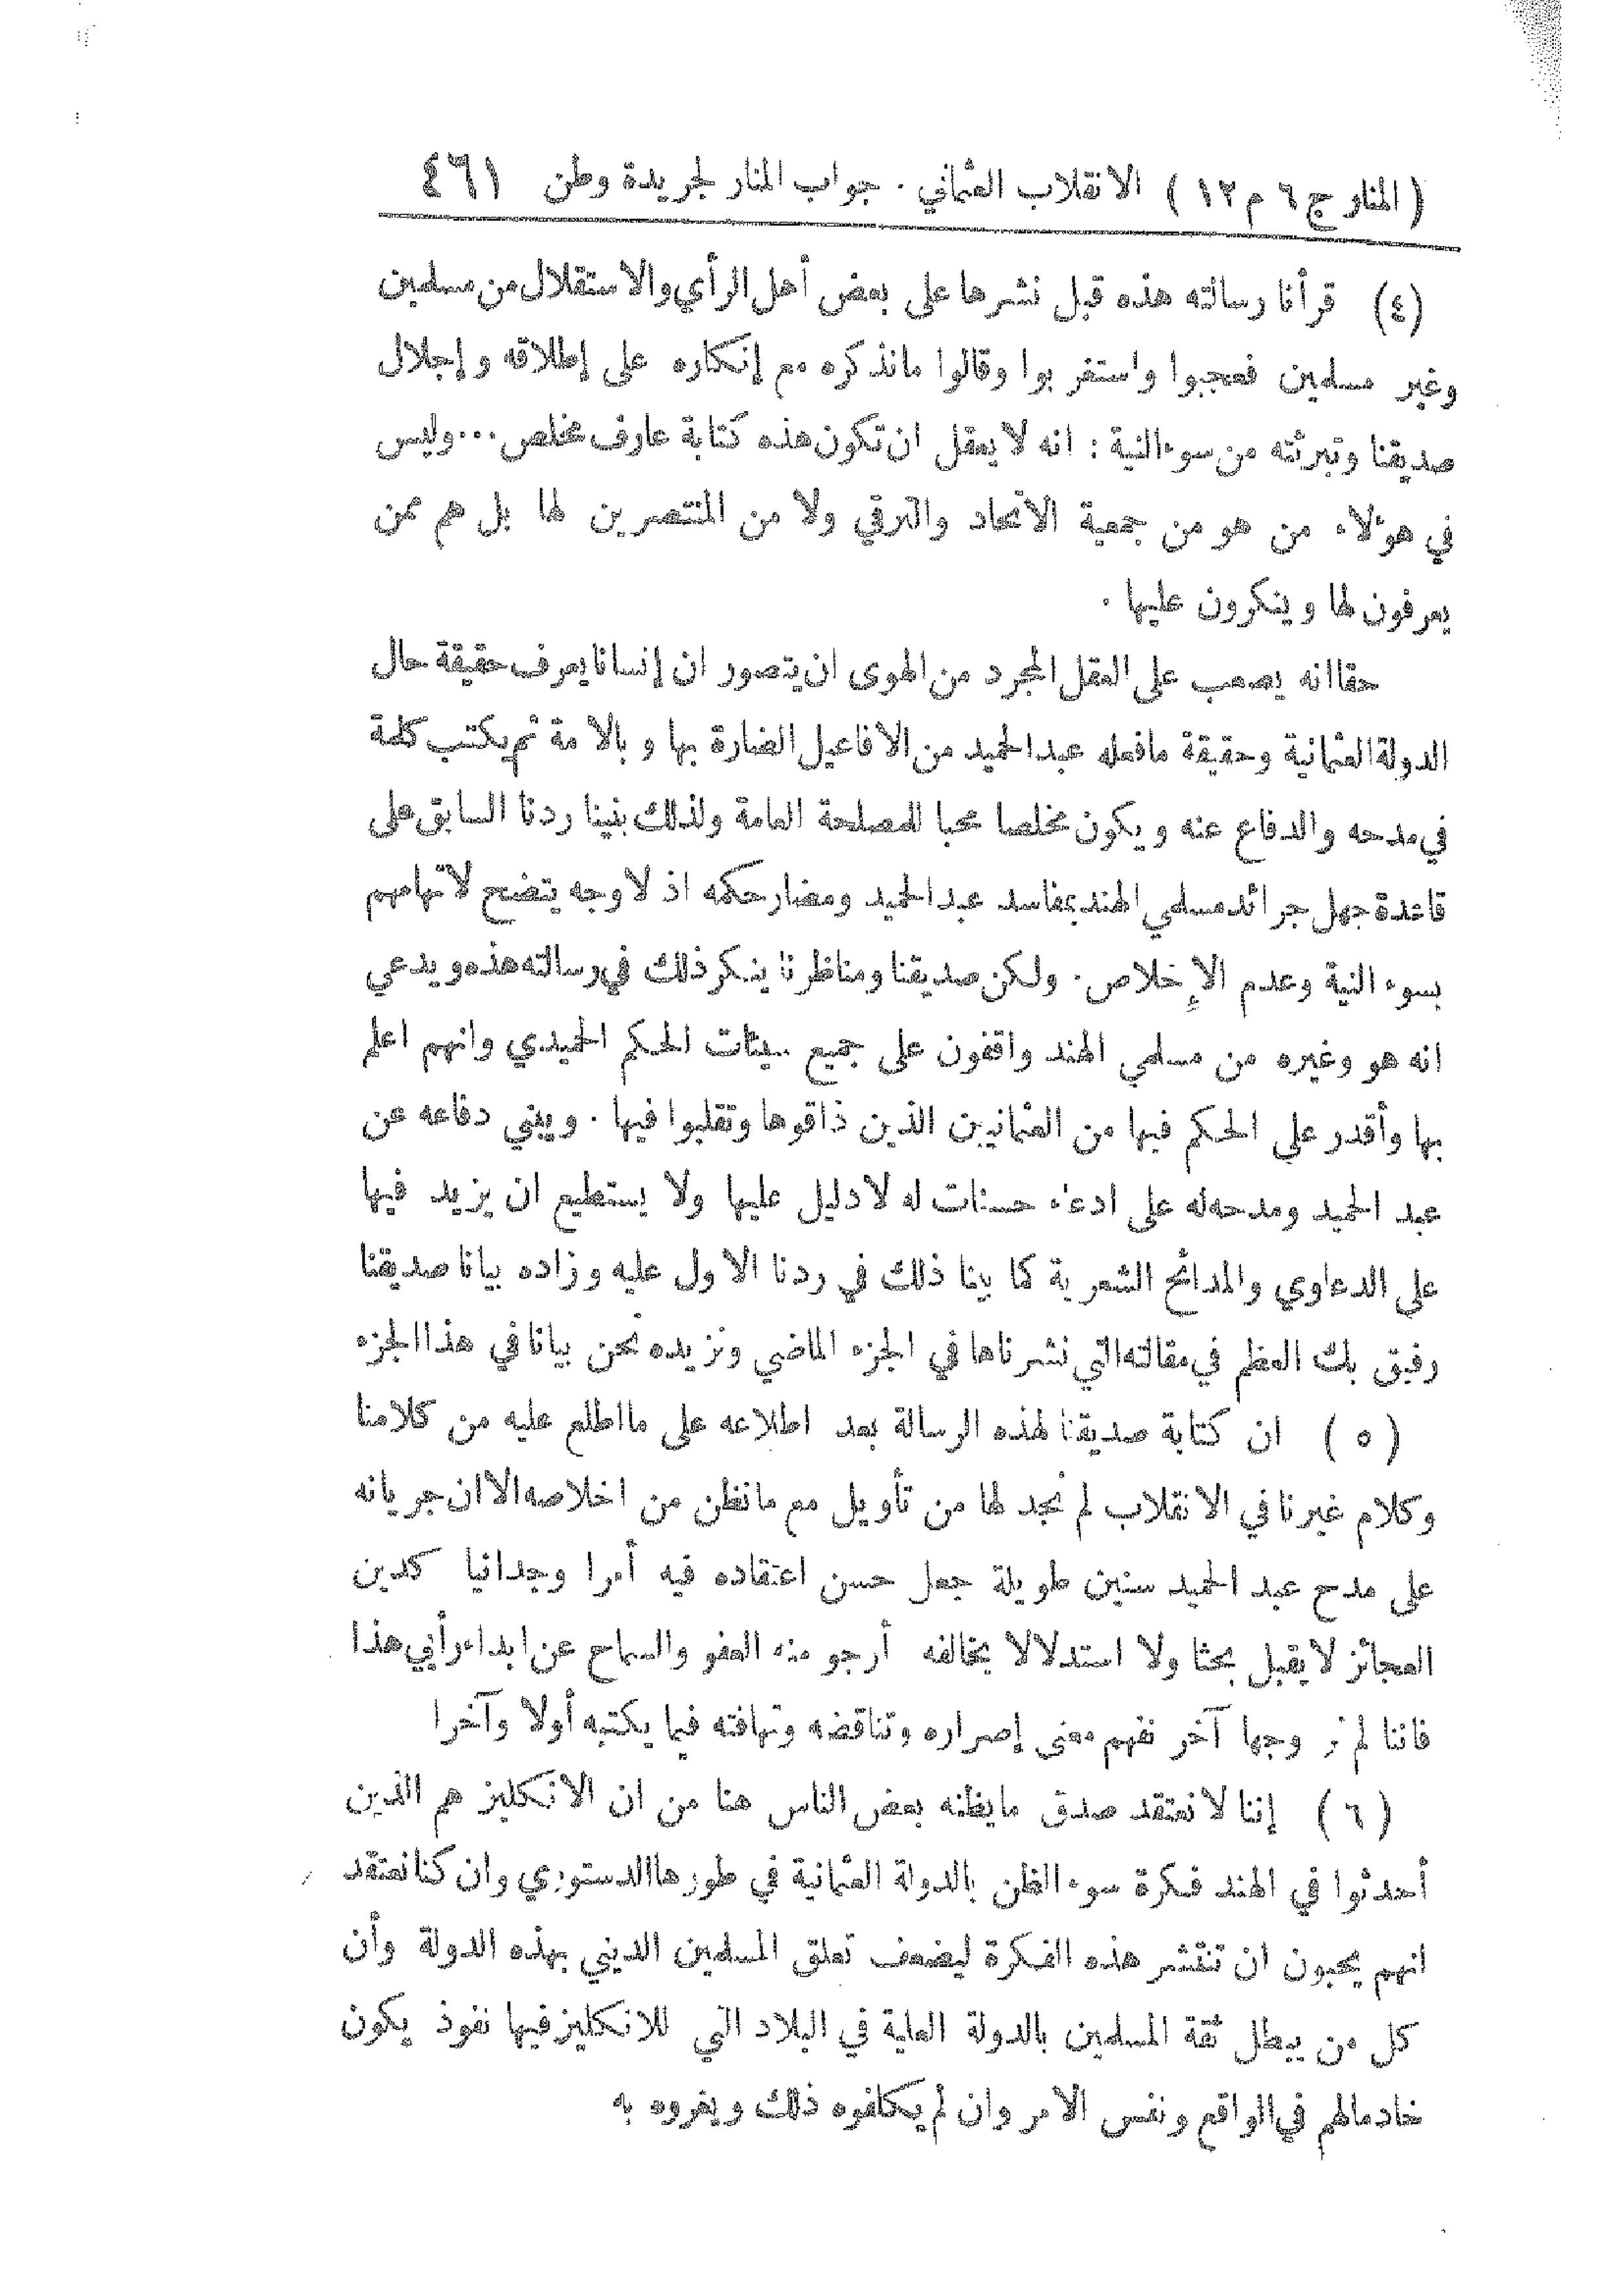 ( المنار ج ٦ م ١٢ ) الانقلاب العثماني . جواب المنار لجريدة وطن ٤٦١
(٤) قرأنا رسالته هذه قبل نشرها على بعض أهل الرأي والاستقلال من مسلمين
وغير مسلمين فعجبوا واستغربوا وقالوا مانذكره مع إنكاره على إطلاقه وإجلال
صديقنا وتبرئته من سوء النية : انه لا يعقل ان تكون هذه كتابة عارف مخلص ... وليس
في هؤلاء من هو من جمعية الاتحاد والترقي ولا من المنتصرين لها بل هم ممن
يعرفون لها وينكرون عليها .
حقا انه يصعب على العقل المجرد من الهوى ان يتصور ان إنسانا يعرف حقيقة حال
الدولة العثمانية وحقيقة مافعله عبدالحميد من الافاعيل الضارة بها وبالامة ثم يكتب كلمة
في مدحه والدفاع عنه ويكون مخلصا محبا للمصلحة العامة ولذلك بنينا ردنا السابق على
قاعدة جهل جرائد مسلمي الهند بمفاسد عبدالحميد ومضار حكمه اذ لا وجه يتضح لاتهامهم
بسوء النية وعدم الإخلاص . ولكن صديقنا ومناظرنا ينكر ذلك في رسالته هذه ويدعي
انه هو وغيره من مسلمي الهند واقفون على جميع سيئات الحكم الحميدي وانهم اعلم
بها وأقدر على الحكم فيها من العثمانيين الذين ذاقوها وتقلبوا فيها . ويبني دفاعه عن
عبد الحميد ومدحه له على ادعاء حسنات له لا دليل عليها ولا يستطيع ان يزيد فيها
على الدعاوي والمدائح الشعرية كما بينا ذلك في ردنا الاول عليه وزاده بيانا صديقنا
رفيق بك العظم في مقالته التي نشرناها في الجزء الماضي ونزيده نحن بيانا في هذا الجزء
( ٥ ) ان كتابة صديقنا لهذه الرسالة بعد اطلاعه على ما اطلع عليه من كلامنا
وكلام غيرنا في الانقلاب لم نجد لها من تأويل مع مانظن من اخلاصه الا ان جريانه
على مدح عبد الحميد سنين طويلة جعل حسن اعتقاده فيه أمرا وجدانيا كدين
العجائز لا يقبل بحثا ولا استدلالا يخالفه أرجو منه العفو والسماح عن ابداء رأيي هذا
فاننا لم نر وجها آخر نفهم معنى إصراره وتناقضه وتهافته فيما يكتبه أولا وآخرا
( ٦ ) إننا لا نعتقد صدق مايظنه بعض الناس هنا من ان الانكليز هم الذين
أحدثوا في الهند فكرة سوء الظن بالدولة العثمانية في طورها الدستوري وان كنا نعتقد
انهم يحبون ان تنتشر هذه الفكرة ليضعف تعلق المسلمين الديني بهذه الدولة وأن
كل من يبطل ثقة المسلمين بالدولة العلية في البلاد التي للانكليز فيها نفوذ يكون
خادما لهم في الواقع ونفس الامر وان لم يكلفوه ذلك ويغروه به